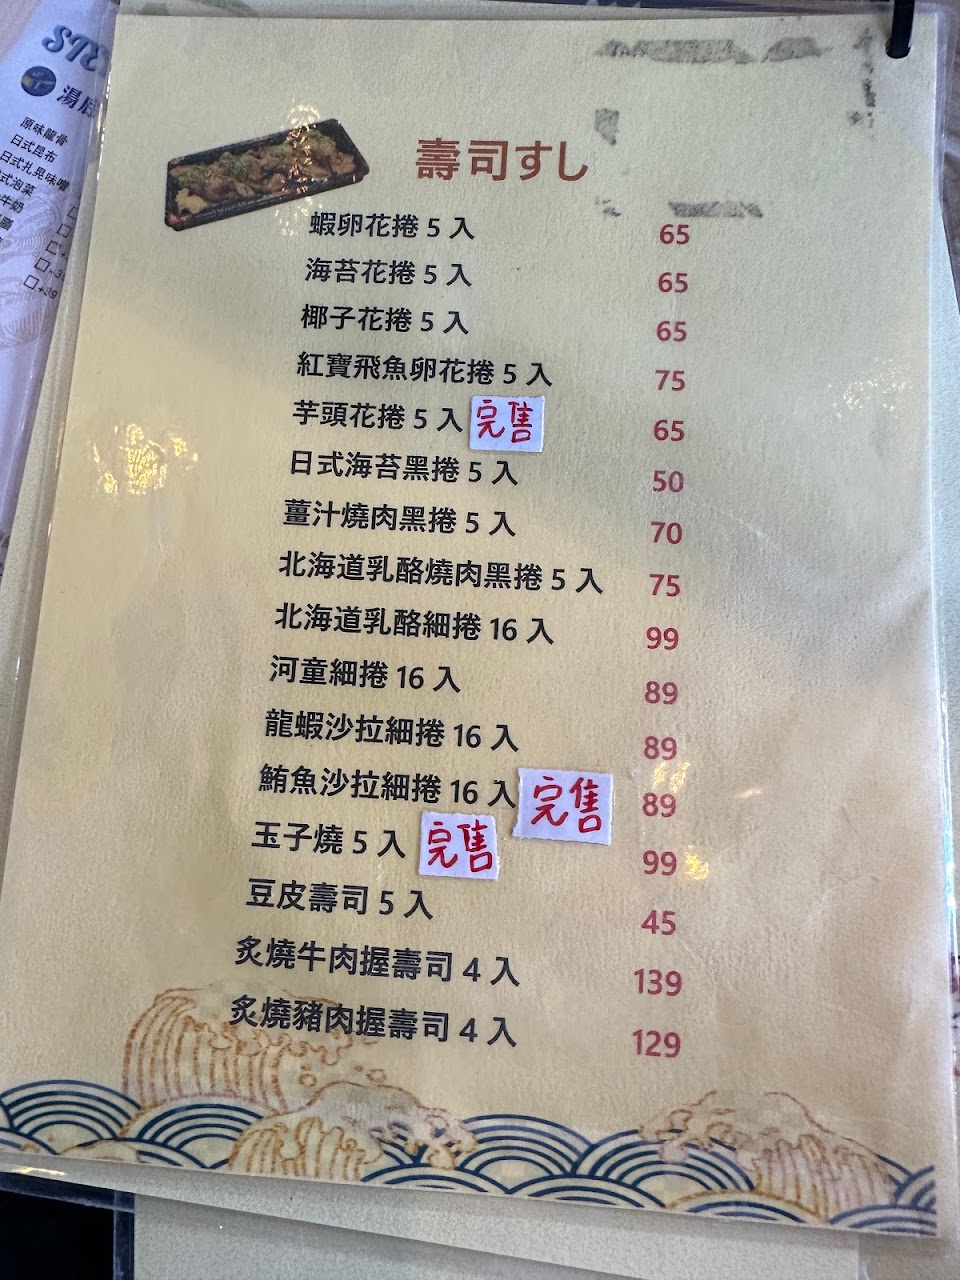 STE
湯底
原味龍骨
日式昆布
日式扎晃味噌
式泡菜
牛奶
+39
壽司すし
蝦卵花捲 5 入 65
海苔花捲 5 入 65
椰子花捲 5 入 65
紅寶飛魚卵花捲 5 入 75
芋頭花捲 5 入 完售 65
日式海苔黑捲 5 入 50
薑汁燒肉黑捲 5 入 70
北海道乳酪燒肉黑捲 5 入 75
北海道乳酪細捲 16 入 99
河童細捲 16 入 89
龍蝦沙拉細捲 16 入 89
鮪魚沙拉細捲 16 入 完售 89
玉子燒 5 入 完售 99
豆皮壽司 5 入 45
炙燒牛肉握壽司 4 入 139
炙燒豬肉握壽司 4 入 129